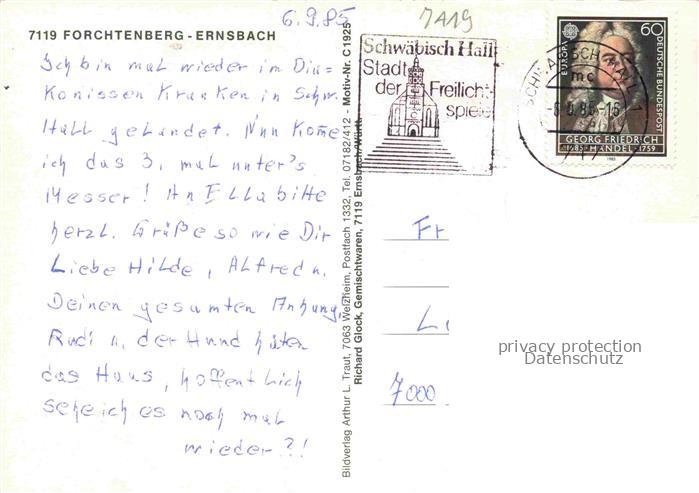 6.9.85
7419
7119 FORCHTENBERG - ERNSBACH
Ich bin mal wieder im Dia=
Konissen Kranken in Schw.
Hall gelandet. Nun Kome
ich das 3. mal unter's
Messer! An Ella bitte
herzl. Grüße so wie Dir
Liebe Hilde, Alfred u.
Deinen gesamten Anhang.
Rudi u. der Hund hüten
das Haus, hoffentlich
sehe ich es noch mal
wieder?!
Bildverlag Arthur L. Traut, 7063 Welzheim, Postfach 1332, Tel. 07182/412 - Motiv-Nr. C 1925
Richard Glock, Gemischtwaren, 7119 Ernsbach/Württ.
Schwäbisch Hall
Stadt
der Freilicht-
spiele
60
EUROPA
DEUTSCHE BUNDESPOST
GEORG FRIEDRICH
1685 HÄNDEL 1759
1985
mc
Fr
L
7000
privacy protection
Datenschutz